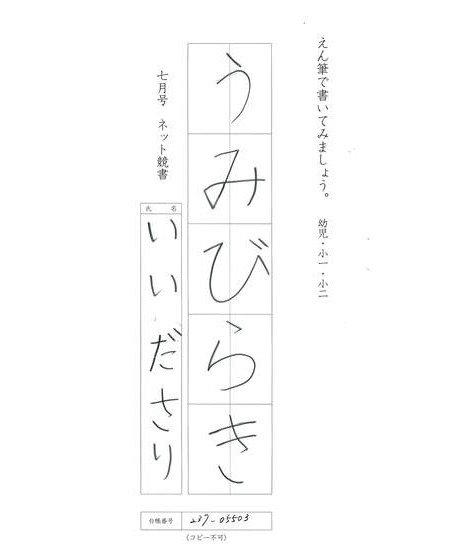 えん筆で書いてみましょう。 幼児・小一・小二
うみびらき
七月号 ネット競書
氏名
いいださり
台帳番号 237-05503
(コピー不可)